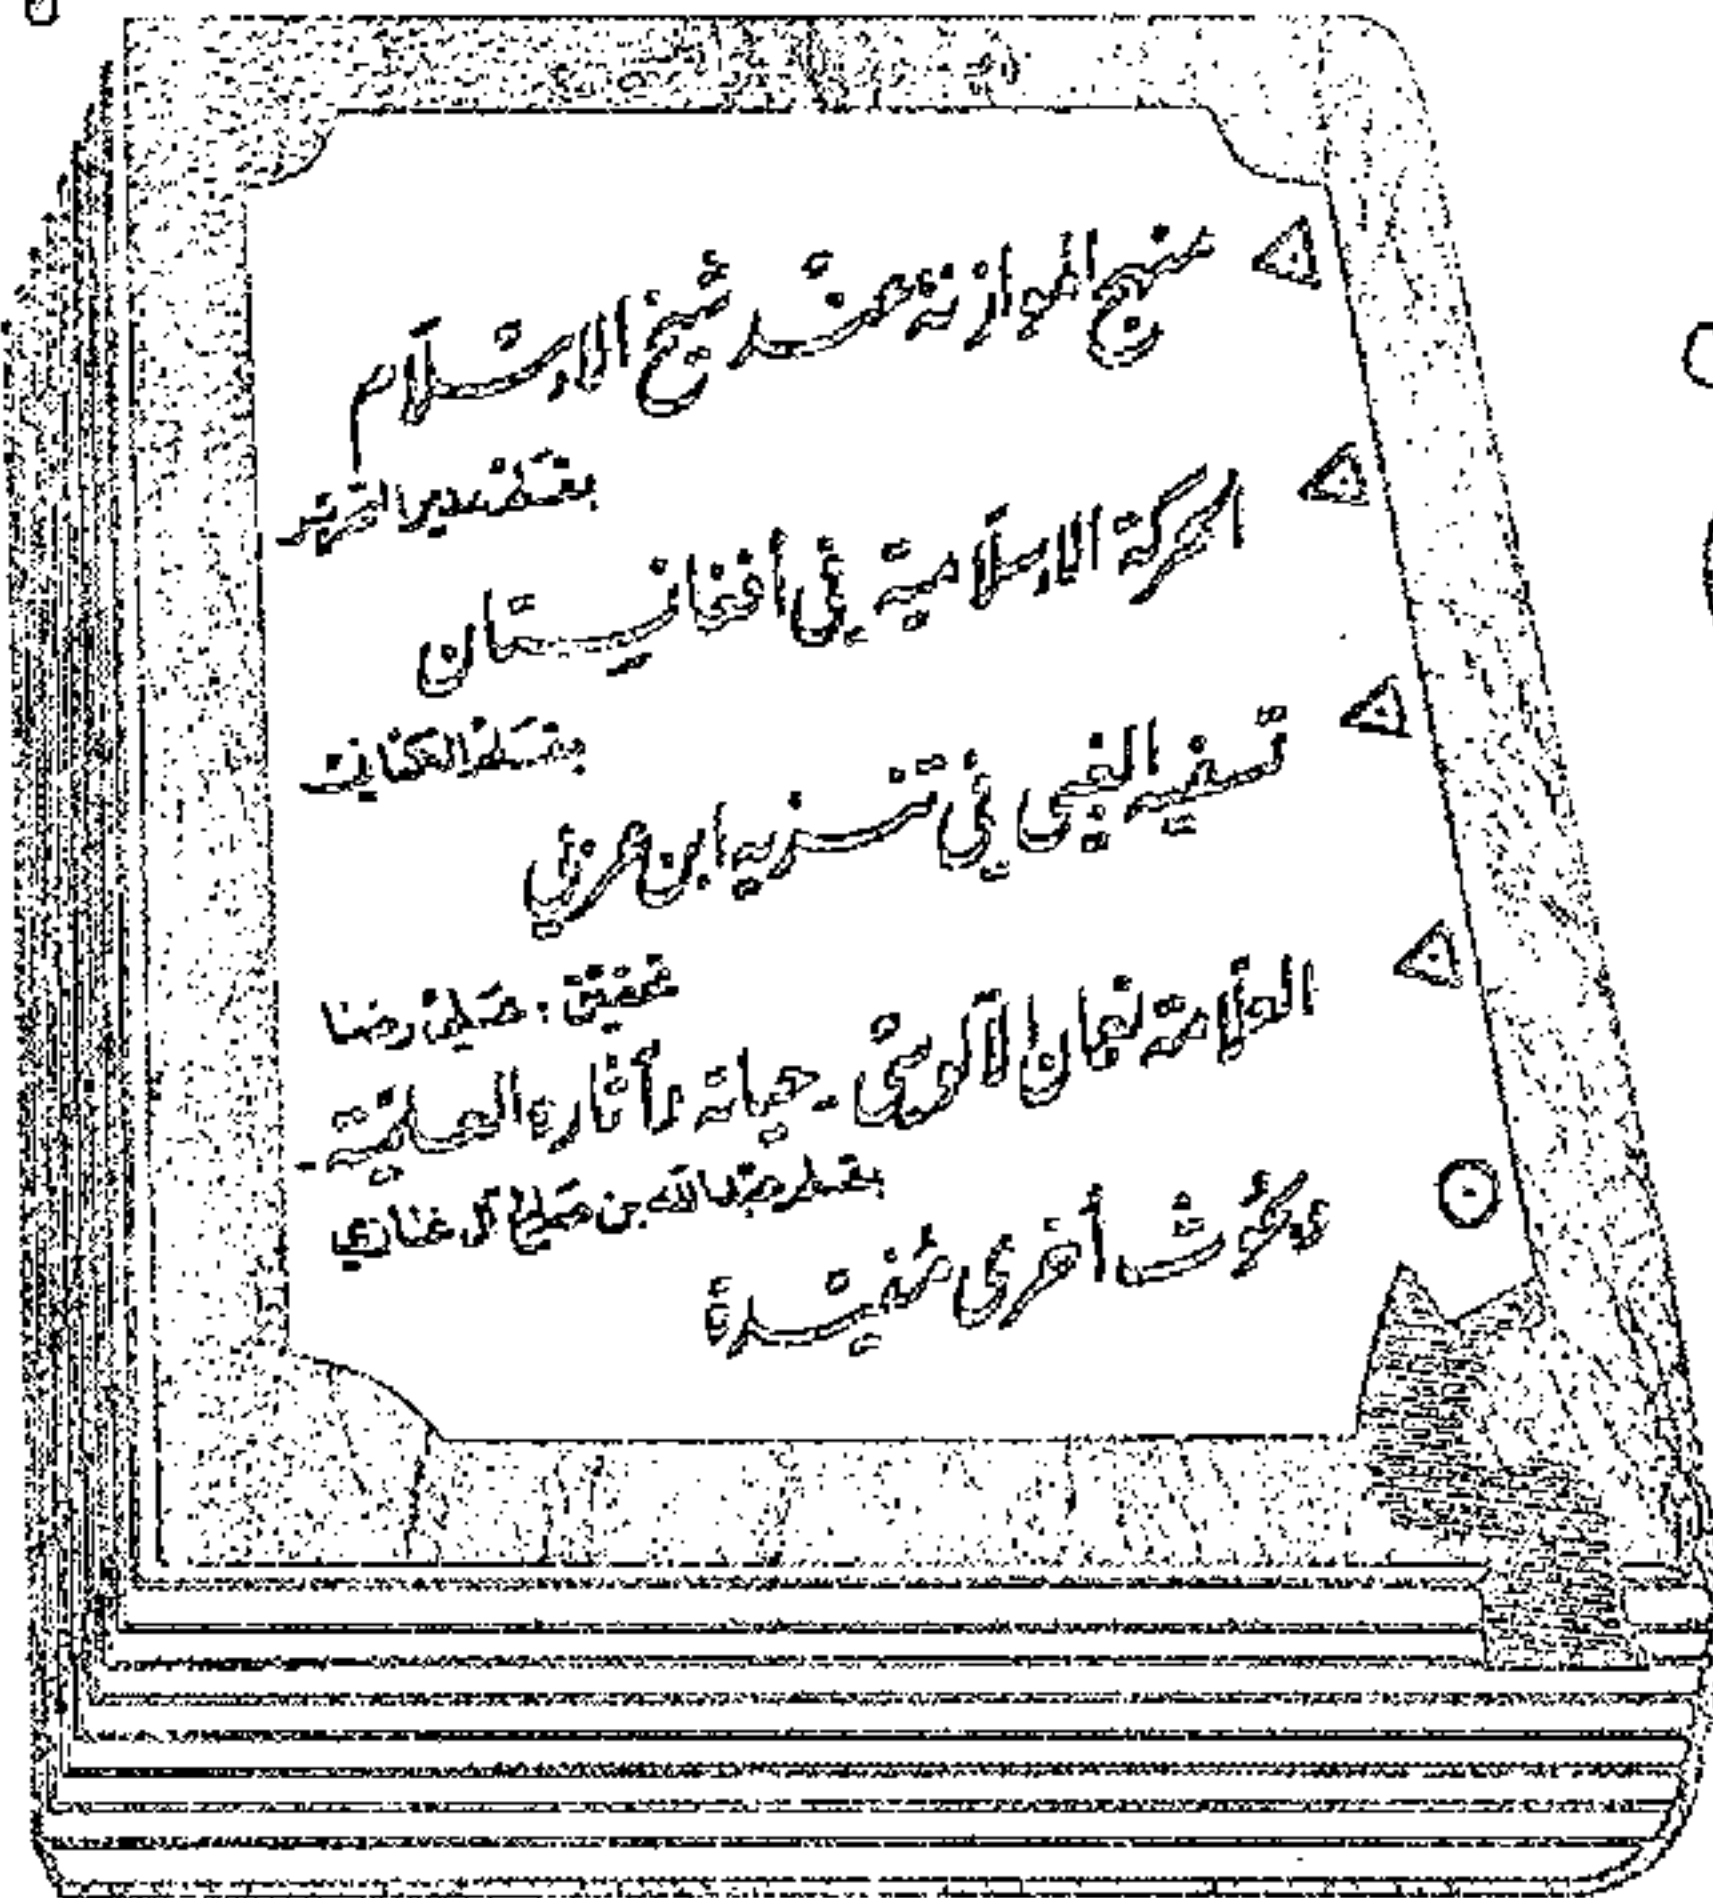 منهج الموازنة عند شيخ الإسلام
بقلم: مدير التحرير
الحركة الإسلامية في أفغانستان
بقلم:
تسفيه الغبي في تنزيه ابن عربي
تحقيق: علي رضا
العلامة نعمان الآلوسي - حياته وآثاره العلمية -
بقلم عبد الله بن صالح آل غازي
وبحوث أخرى مفيدة